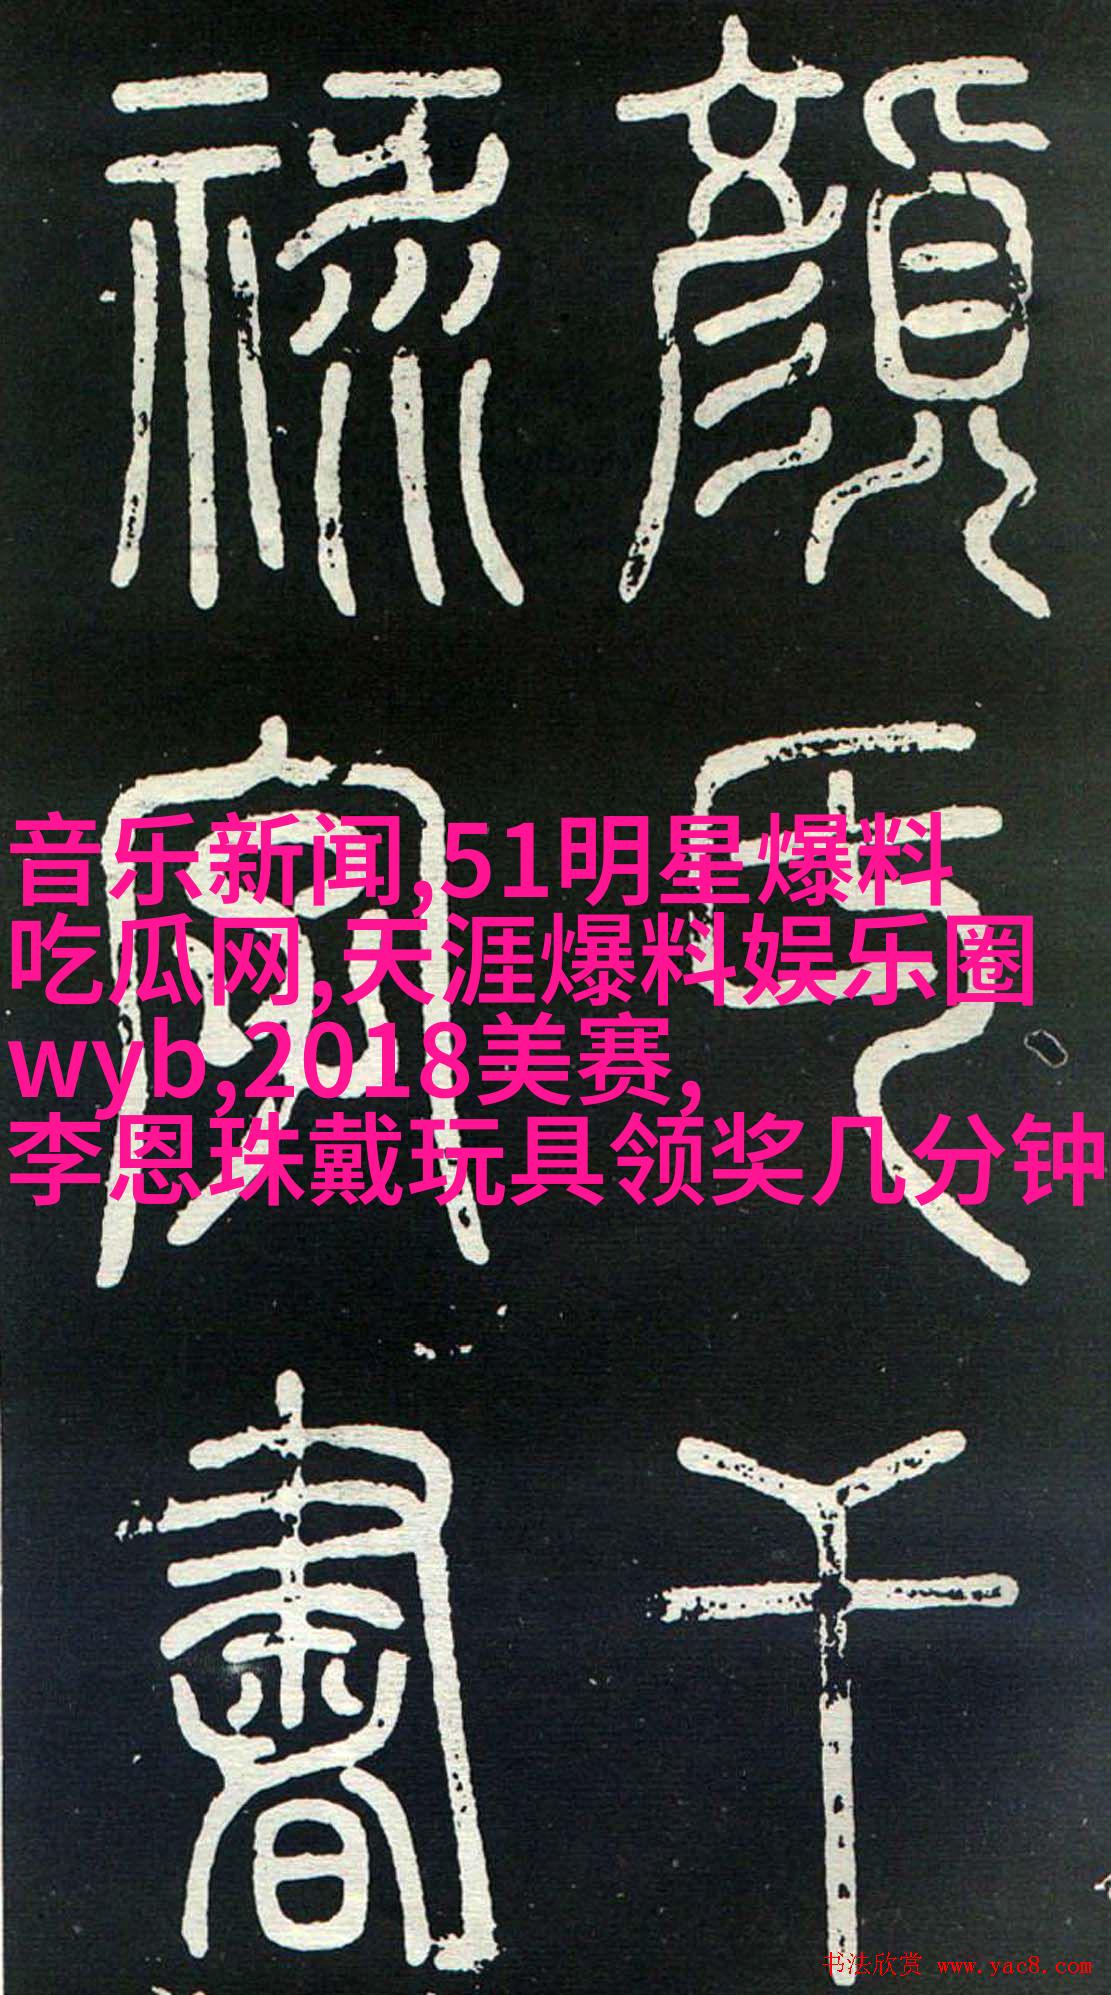 顏氏干
祿字書
音乐新闻,51明星爆料
吃瓜网,天涯爆料娱乐圈
wyb,2018美赛,
李恩珠戴玩具领奖几分钟
书法欣赏 www.yac8.com